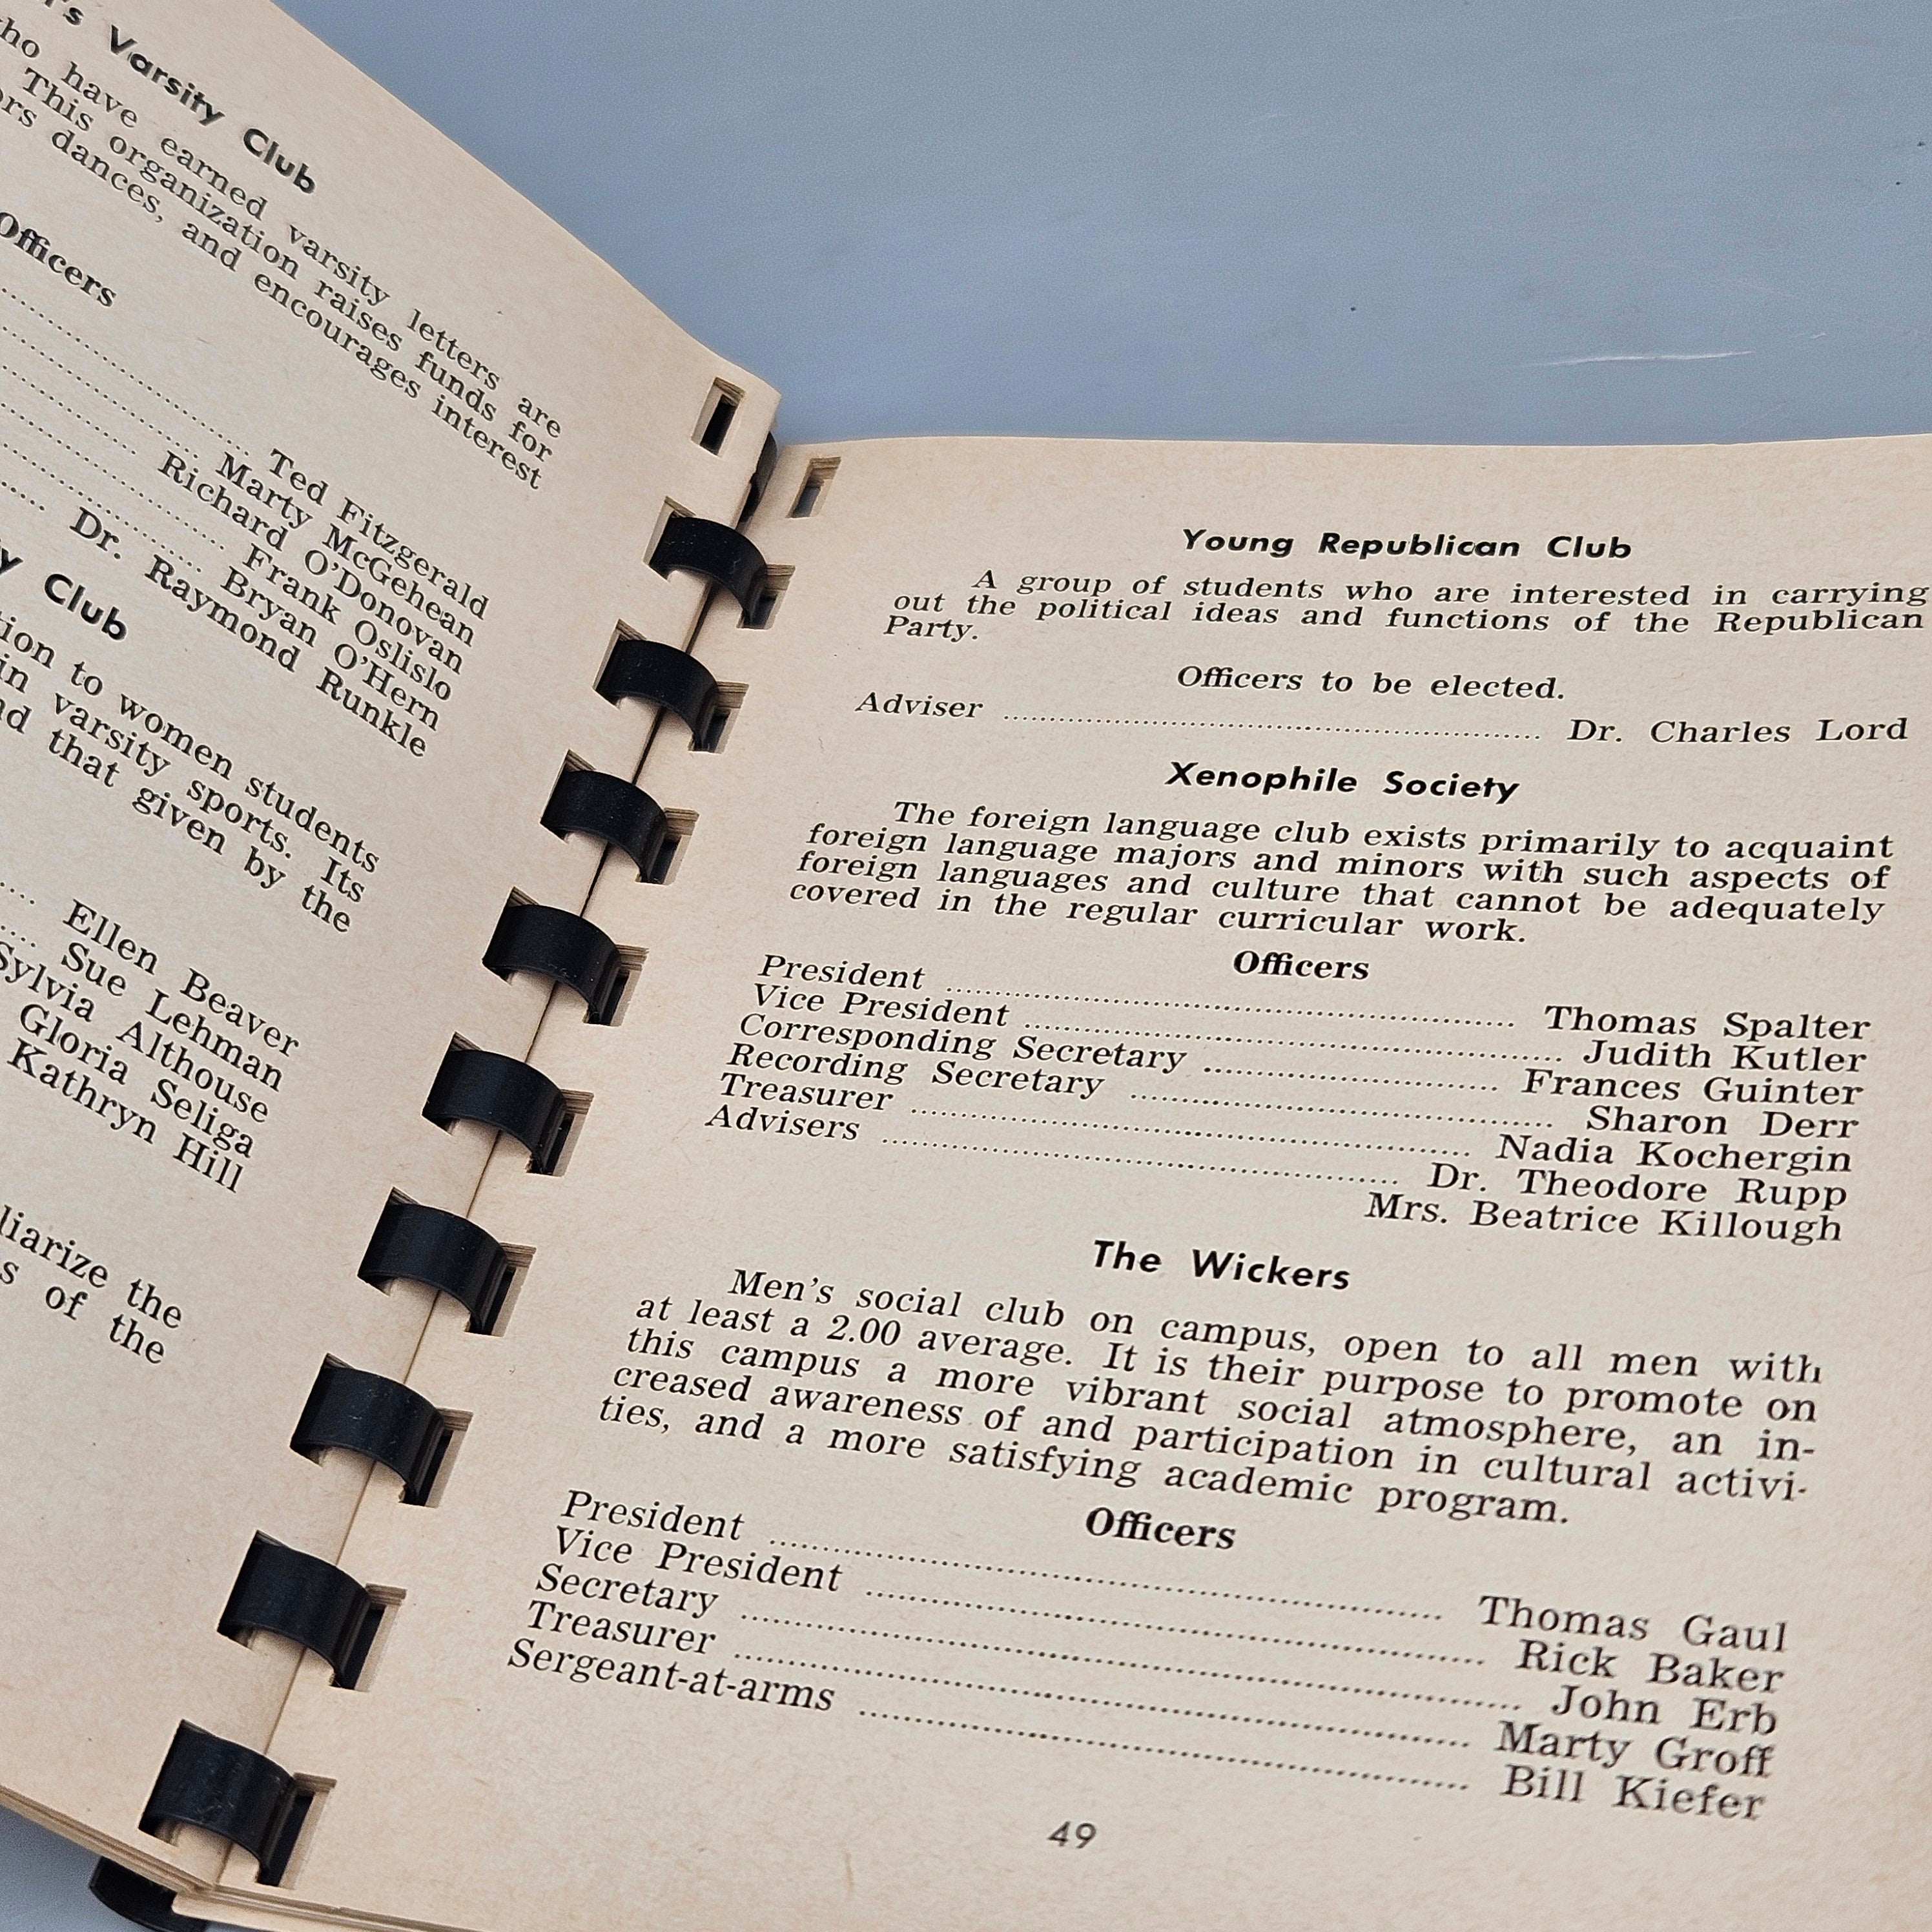 Varsity Club
have earned varsity letters are
This organization raises funds for
dances, and encourages interest
Officers
Ted Fitzgerald
Marty McGehean
Richard O'Donovan
Frank Oslislo
Bryan O'Hern
Dr. Raymond Runkle
Club
to women students
in varsity sports. Its
that given by the
Ellen Beaver
Sue Lehman
Sylvia Althouse
Gloria Seliga
Kathryn Hill
the
of the
Young Republican Club
A group of students who are interested in carrying
out the political ideas and functions of the Republican
Party.
Officers to be elected.
Adviser ........ Dr. Charles Lord
Xenophile Society
The foreign language club exists primarily to acquaint
foreign language majors and minors with such aspects of
foreign languages and culture that cannot be adequately
covered in the regular curricular work.
Officers
President ........ Thomas Spalter
Vice President ........ Judith Kutler
Corresponding Secretary ........ Frances Guinter
Recording Secretary ........ Sharon Derr
Treasurer ........ Nadia Kochergin
Advisers ........ Dr. Theodore Rupp
Mrs. Beatrice Killough
The Wickers
Men's social club on campus, open to all men with
at least a 2.00 average. It is their purpose to promote on
this campus a more vibrant social atmosphere, an in-
creased awareness of and participation in cultural activi-
ties, and a more satisfying academic program.
Officers
President ........ Thomas Gaul
Vice President ........ Rick Baker
Secretary ........ John Erb
Treasurer ........ Marty Groff
Sergeant-at-arms ........ Bill Kiefer
49